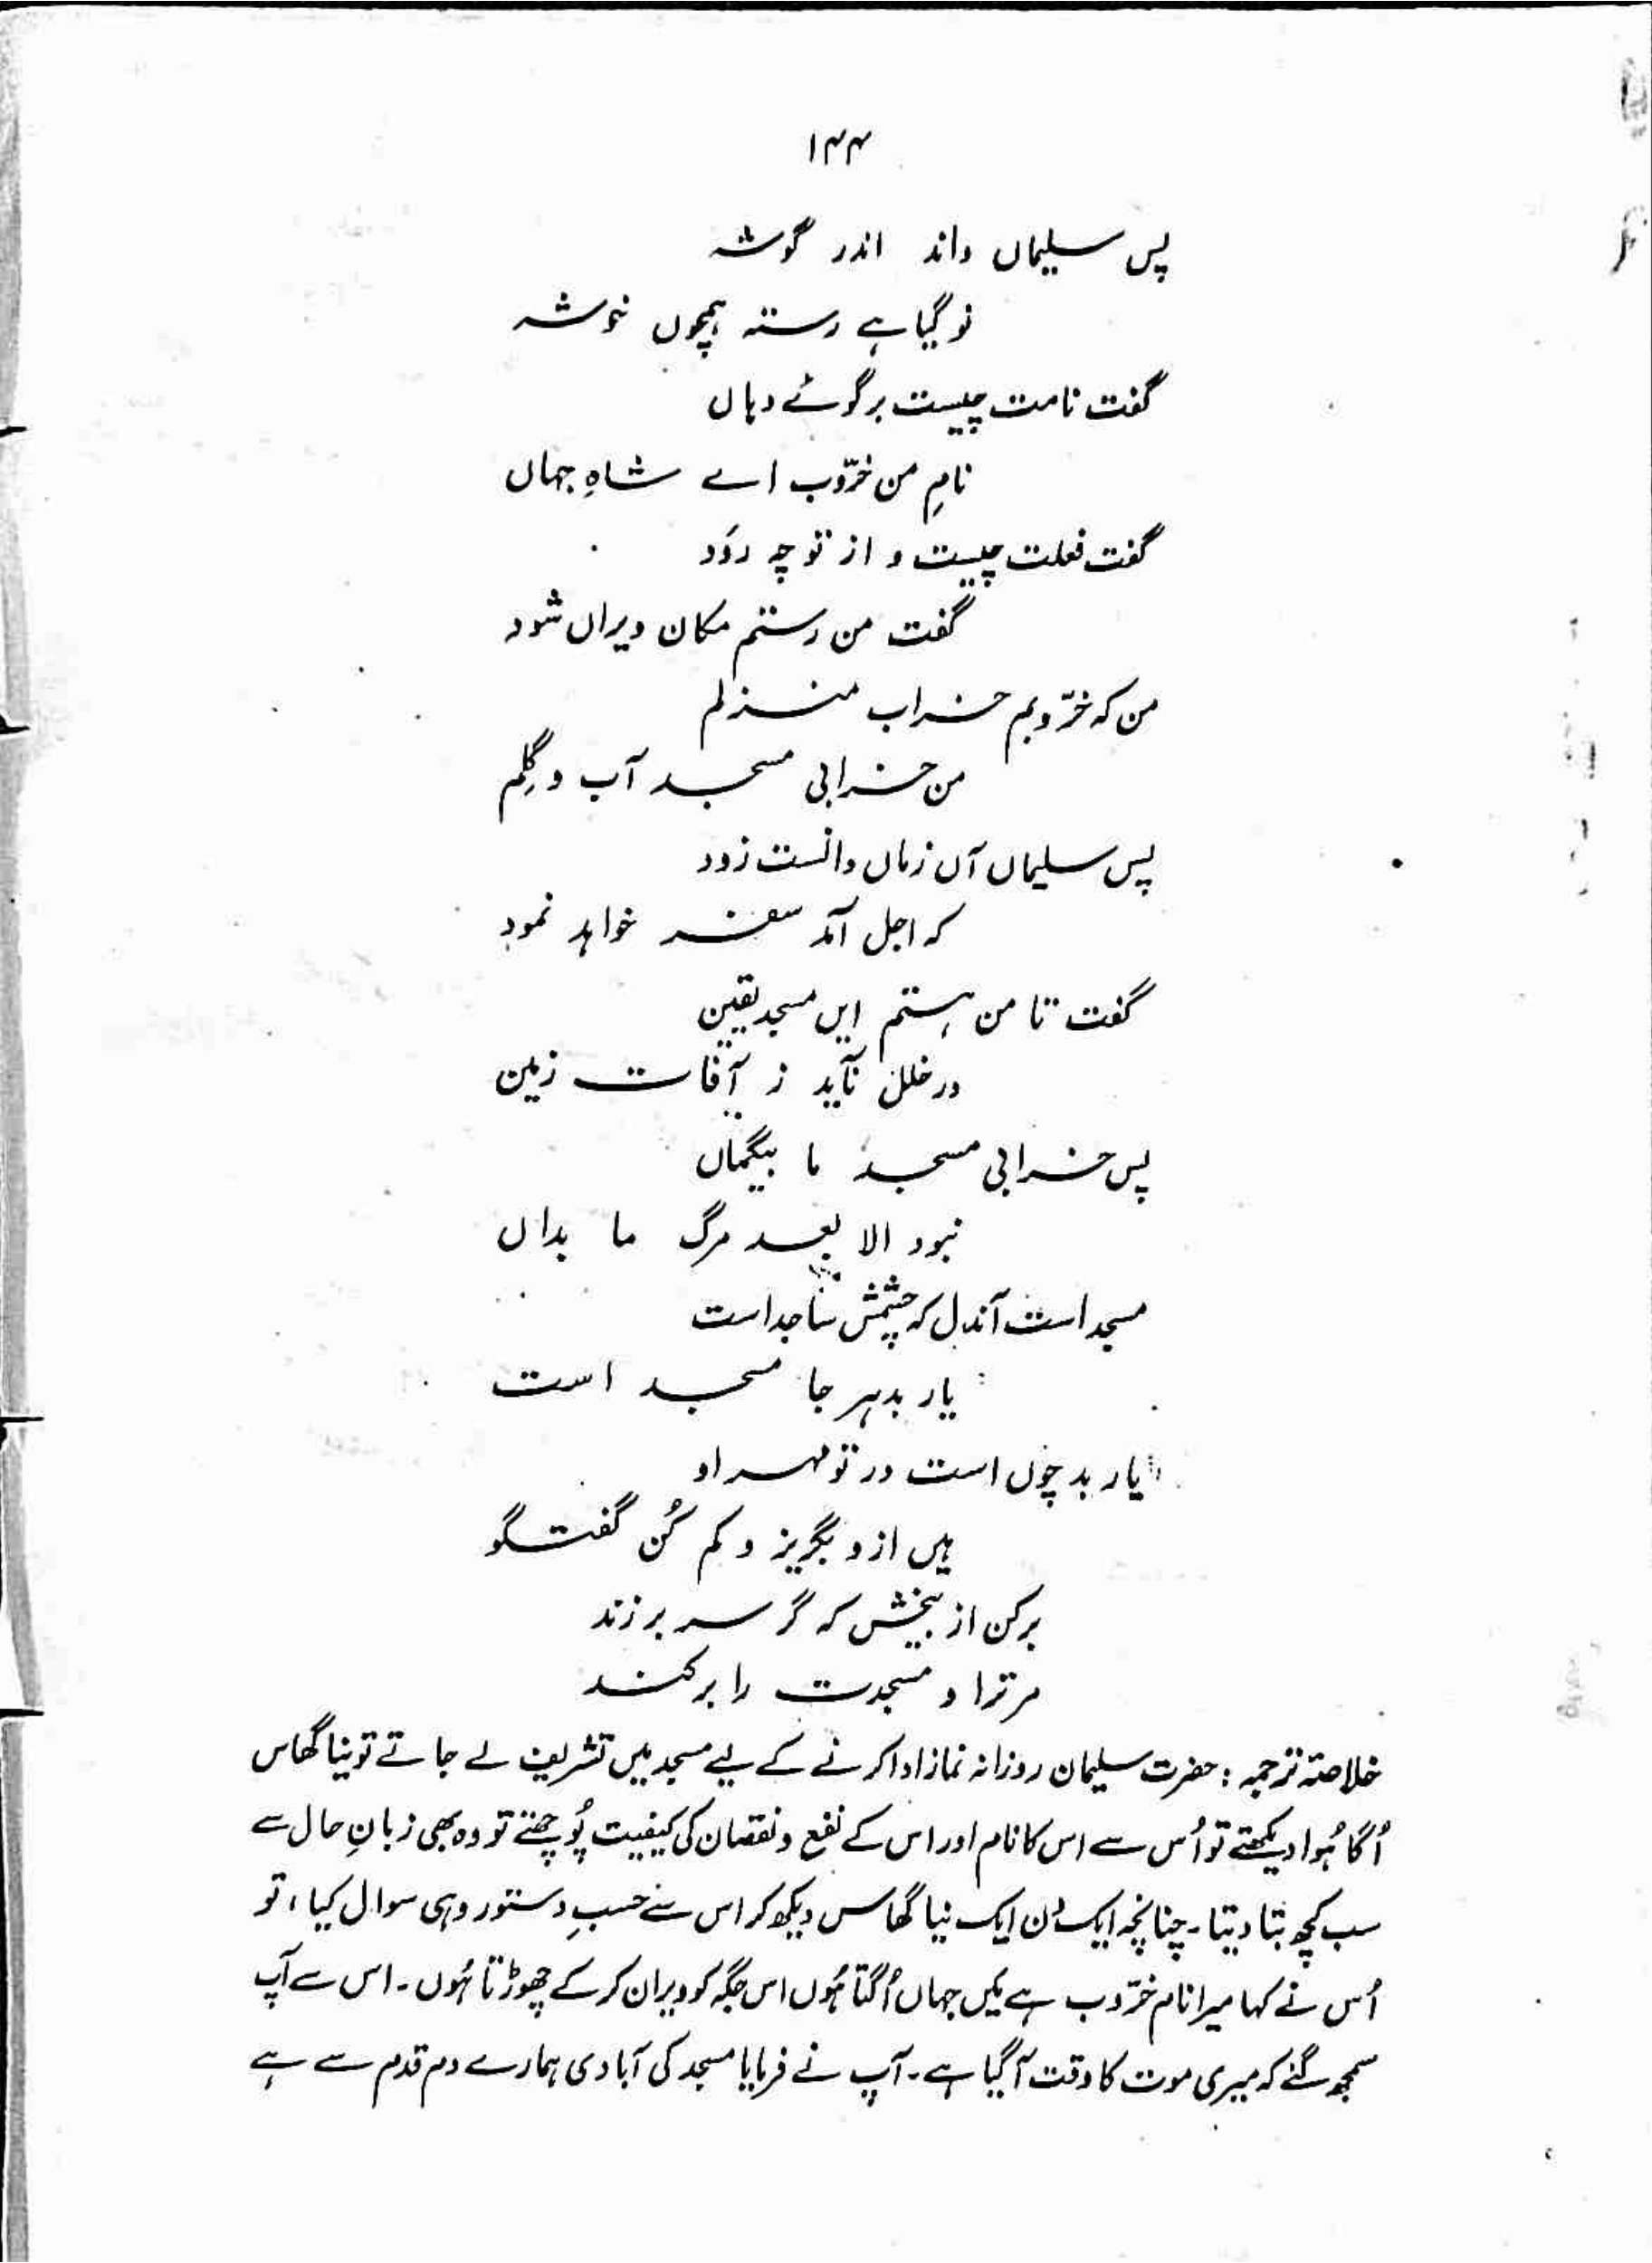 ۱۴۴
پس سلیماں داند اندر گوشۂ
نو گیاہے رستہ ہمچوں خوشۂ
گفت نامت چیست برگوئے دہاں
نامِ من خرّوب اے شاہِ جہاں
گفت فعلت چیست و از تو چہ رَوَد
گفت من رستم مکان ویراں شود
من کہ خرّوبم خراب منزلم
من خرابی مسجد آب و گِلم
پس سلیماں آں زماں دانست زود
کہ اجل آمد سفر خواہد نمود
گفت تا من ہستم ایں مسجد یقین
در خلل نآید ز آفات زمین
پس خرابی مسجد ما بیگماں
نبود الا بعد مرگ ما بداں
مسجد است آندل کہ چشمش ساجد است
یار بد ہر جا مسجد است
یار بد چوں است در تو مہر او
ہیں ازو بگریز و کم کُن گفتگو
برکن از بیخش کہ گر سر برزند
مر ترا و مسجدت را برکند
خلاصۂ ترجمہ : حضرت سلیمان روزانہ نماز ادا کرنے کے لیے مسجد میں تشریف لے جاتے تو نیا گھاس
اُگا ہُوا دیکھتے تو اُس سے اس کا نام اور اس کے نفع و نقصان کی کیفیت پُوچھتے تو وہ بھی زبانِ حال سے
سب کچھ بتا دیتا۔ چنانچہ ایک دن ایک نیا گھاس دیکھ کر اس سے حسبِ دستور وہی سوال کیا، تو
اُس نے کہا میرا نام خرّوب ہے میں جہاں اُگتا ہُوں اس جگہ کو ویران کر کے چھوڑتا ہُوں۔ اس سے آپ
سمجھ گئے کہ میری موت کا وقت آ گیا ہے۔ آپ نے فرمایا مسجد کی آبادی ہمارے دم قدم سے ہے